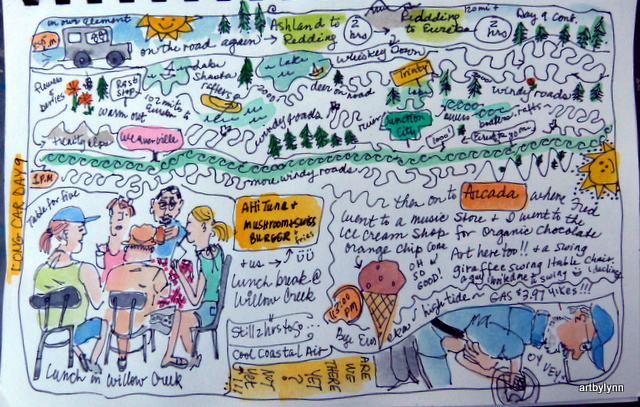 in our element
on the road again → Ashland to Redding → 2 hrs
Redding to Eureka
2 hrs
Day 9 Cont.
Whiskey Town
Flowers & berries
Rest Stop
Lake Shasta
rafters
Lake
deer on road
Trinity
Lake
windy roads
102 miles to Eureka
warm out
windy roads
river
Junction City
yellow rafts
Weaverville
1 P.M
more windy roads
LONG CAR DAY 9
Table for five
AHI TUNA + MUSHROOM + SWISS BURGER + fries
+ us →
Lunch break @ Willow Creek
Still 2 hrs to go...
Cool Coastal Air
ARE WE THERE YET? NOT YET!!!
Lunch in Willow Creek
then on to Arcada where Fred
went to a music store + I went to the
ice cream shop for organic chocolate
orange chip cone
OH SO GOOD!
Art here too!! + a swing
giraffe swing
chair,
Bye
high tide ~ GAS $3.97 YIKES!!!
OY VEY
artbylynn